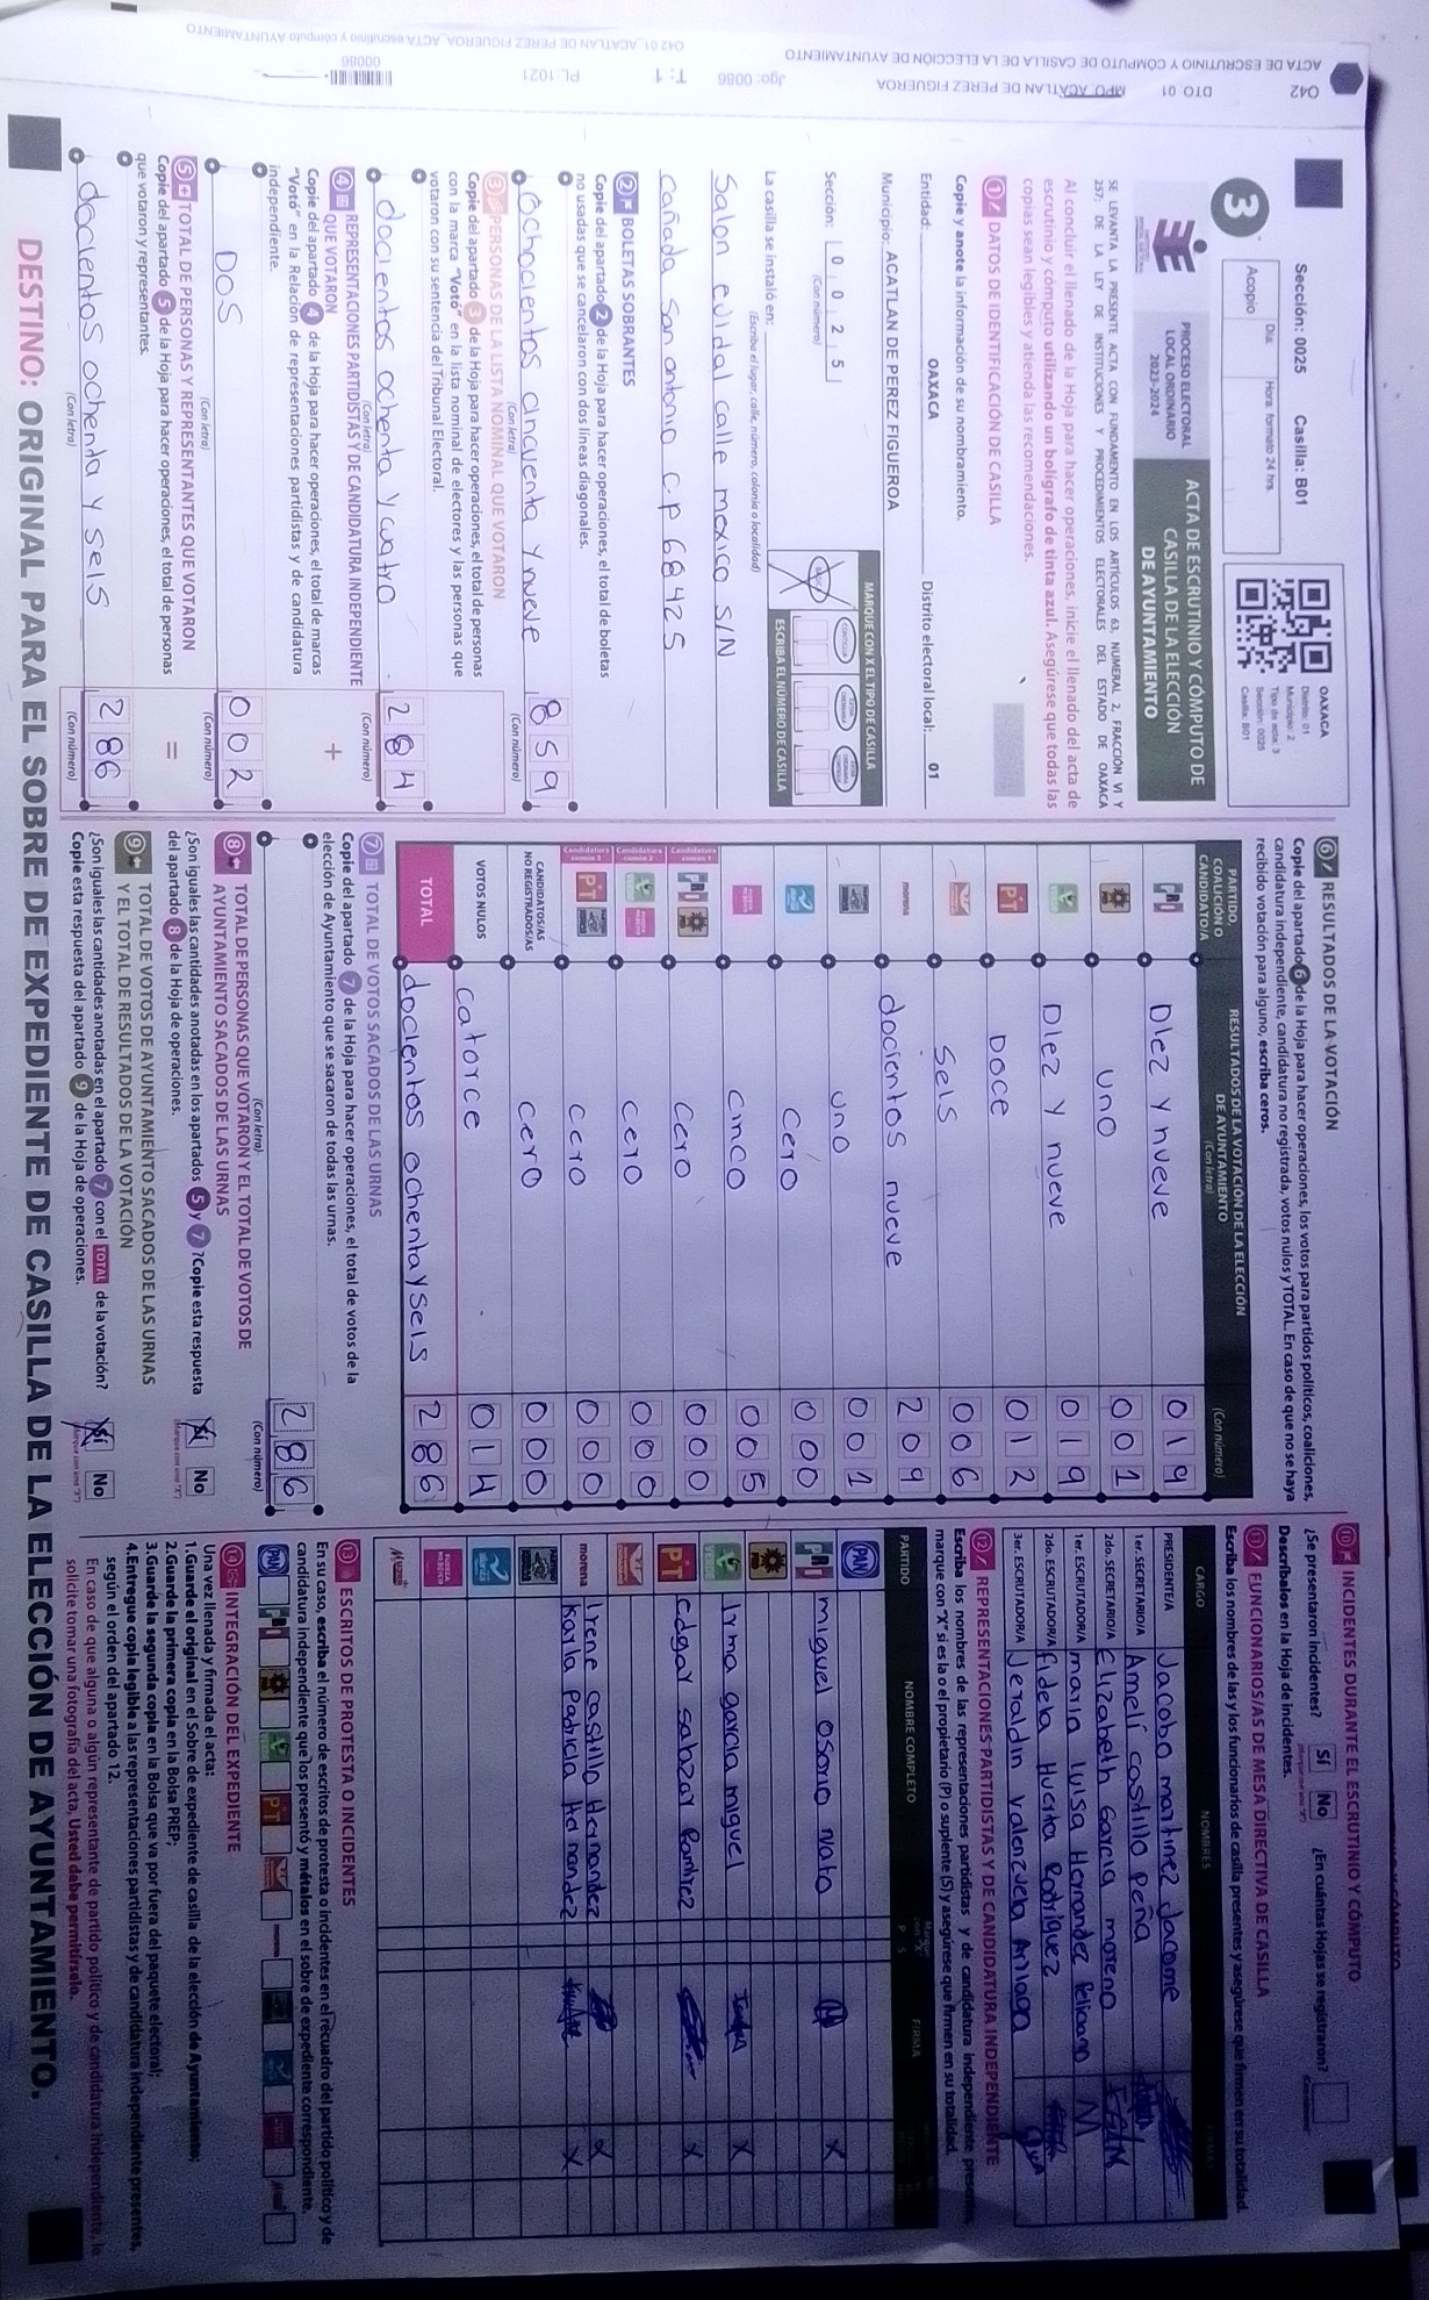 Sección: 0025 Casilla: B01
3
Acopio
Día:
Hora: formato 24 hrs.
OAXACA
Distrito: 01
Municipio: 2
Tipo de acta: 3
Sección: 0025
Casilla: B01
PROCESO ELECTORAL
LOCAL ORDINARIO
2023-2024
ACTA DE ESCRUTINIO Y CÓMPUTO DE
CASILLA DE LA ELECCIÓN
DE AYUNTAMIENTO
SE LEVANTA LA PRESENTE ACTA CON FUNDAMENTO EN LOS ARTÍCULOS 63, NUMERAL 2, FRACCIÓN VI Y
257; DE LA LEY DE INSTITUCIONES Y PROCEDIMIENTOS ELECTORALES DEL ESTADO DE OAXACA
Al concluir el llenado de la Hoja para hacer operaciones, inicie el llenado del acta de
escrutinio y cómputo utilizando un bolígrafo de tinta azul. Asegúrese que todas las
copias sean legibles y atienda las recomendaciones.
1 DATOS DE IDENTIFICACIÓN DE CASILLA
Copie y anote la información de su nombramiento.
Entidad: OAXACA Distrito electoral local: 01
Municipio: ACATLAN DE PEREZ FIGUEROA
MARQUE CON X EL TIPO DE CASILLA
Sección: 0 0 2 5
(Con número)
ESCRIBA EL NÚMERO DE CASILLA
La casilla se instaló en:
(Escriba el lugar, calle, número, colonia o localidad)
Salon evidal calle mexico S/N
cañada san antonio c.p 68425
2 BOLETAS SOBRANTES
Copie del apartado 2 de la Hoja para hacer operaciones, el total de boletas
no usadas que se cancelaron con dos líneas diagonales.
Ochocientos cincuenta y nueve 859
(Con letra) (Con número)
3 PERSONAS DE LA LISTA NOMINAL QUE VOTARON
Copie del apartado 3 de la Hoja para hacer operaciones, el total de personas
con la marca "Votó" en la lista nominal de electores y las personas que
votaron con su sentencia del Tribunal Electoral.
docientos ochenta y cuatro 284
(Con letra) (Con número)
4 REPRESENTACIONES PARTIDISTAS Y DE CANDIDATURA INDEPENDIENTE
QUE VOTARON
Copie del apartado 4 de la Hoja para hacer operaciones, el total de marcas
"Votó" en la Relación de representaciones partidistas y de candidatura
independiente.
+
DOS 002
(Con letra) (Con número)
5 TOTAL DE PERSONAS Y REPRESENTANTES QUE VOTARON
Copie del apartado 5 de la Hoja para hacer operaciones, el total de personas
que votaron y representantes.
=
docientos ochenta y seis 286
(Con letra) (Con número)
6 RESULTADOS DE LA VOTACIÓN
Copie del apartado 6 de la Hoja para hacer operaciones, los votos para partidos políticos, coaliciones,
candidatura independiente, candidatura no registrada, votos nulos y TOTAL. En caso de que no se haya
recibido votación para alguno, escriba ceros.
PARTIDO,
COALICIÓN O
CANDIDATO/A
RESULTADOS DE LA VOTACIÓN DE LA ELECCIÓN
DE AYUNTAMIENTO
(Con letra) (Con número)
PRI Diez y nueve 019
uno 001
VERDE Diez y nueve 019
PT Doce 012
Seis 006
morena docientos nueve 209
uno 001
cero 000
cinco 005
PRI cero 000
cero 000
PT cero 000
CANDIDATOS/AS
NO REGISTRADOS/AS cero 000
VOTOS NULOS catorce 014
TOTAL docientos ochenta y seis 286
7 TOTAL DE VOTOS SACADOS DE LAS URNAS
Copie del apartado 7 de la Hoja para hacer operaciones, el total de votos de la
elección de Ayuntamiento que se sacaron de todas las urnas.
286
(Con letra) (Con número)
8 TOTAL DE PERSONAS QUE VOTARON Y EL TOTAL DE VOTOS DE
AYUNTAMIENTO SACADOS DE LAS URNAS
¿Son iguales las cantidades anotadas en los apartados 5 y 7? Copie esta respuesta
del apartado 8 de la Hoja de operaciones.
Sí No
9 TOTAL DE VOTOS DE AYUNTAMIENTO SACADOS DE LAS URNAS
Y EL TOTAL DE RESULTADOS DE LA VOTACIÓN
¿Son iguales las cantidades anotadas en el apartado 7 con el TOTAL de la votación?
Copie esta respuesta del apartado 9 de la Hoja de operaciones.
Sí No
10 INCIDENTES DURANTE EL ESCRUTINIO Y CÓMPUTO
¿Se presentaron incidentes? Sí No ¿En cuántas Hojas se registraron?
Descríbalos en la Hoja de incidentes.
11 FUNCIONARIOS/AS DE MESA DIRECTIVA DE CASILLA
Escriba los nombres de las y los funcionarios de casilla presentes y asegúrese que firmen en su totalidad.
CARGO NOMBRES
PRESIDENTE/A Jacobo martinez Jacome
1er. SECRETARIO/A Amelí castillo Peña
2do. SECRETARIO/A Elizabeth Garcia moreno
1er. ESCRUTADOR/A maria luisa Hernandez Feliciano
2do. ESCRUTADOR/A Fidela Huerta Rodriguez
3er. ESCRUTADOR/A Jeraldin Valenzuela Arllaga
12 REPRESENTACIONES PARTIDISTAS Y DE CANDIDATURA INDEPENDIENTE
Escriba los nombres de las representaciones partidistas y de candidatura independiente presentes,
marque con "X" si es la o el propietario (P) o suplente (S) y asegúrese que firmen en su totalidad.
PARTIDO NOMBRE COMPLETO P S FIRMA
PAN
PRI miguel osorio nato X
VERDE Irma garcia miguel X
PT edgar sabzar Ramirez X
morena Irene castillo Hernandez X
Karla Patricia Hernandez X
13 ESCRITOS DE PROTESTA O INCIDENTES
En su caso, escriba el número de escritos de protesta o incidentes en el recuadro del partido político y de
candidatura independiente que los presentó y métalos en el sobre de expediente correspondiente.
PAN PRI PT
14 INTEGRACIÓN DEL EXPEDIENTE
Una vez llenada y firmada el acta:
1.Guarde el original en el Sobre de expediente de casilla de la elección de Ayuntamiento;
2.Guarde la primera copia en la Bolsa PREP;
3.Guarde la segunda copia en la Bolsa que va por fuera del paquete electoral;
4.Entregue copia legible a las representaciones partidistas y de candidatura independiente presentes,
según el orden del apartado 12.
En caso de que alguna o algún representante de partido político y de candidatura independiente, le
solicite tomar una fotografía del acta, Usted debe permitírselo.
DESTINO: ORIGINAL PARA EL SOBRE DE EXPEDIENTE DE CASILLA DE LA ELECCIÓN DE AYUNTAMIENTO.
ACTA DE ESCRUTINIO Y CÓMPUTO DE CASILLA DE LA ELECCIÓN DE AYUNTAMIENTO
O42 DTO 01 MPO ACATLAN DE PEREZ FIGUEROA
Jgo: 0086 T: 1 PL: 1021
O42 01_ACATLAN DE PEREZ FIGUEROA_ACTA escrutinio y cómputo AYUNTAMIENTO
00086